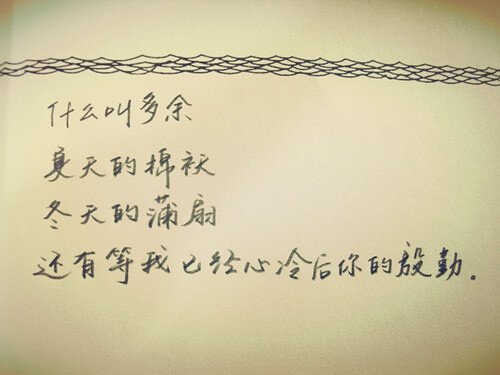 什么叫多余
夏天的棉袄
冬天的蒲扇
还有等我已经心冷后你的殷勤.